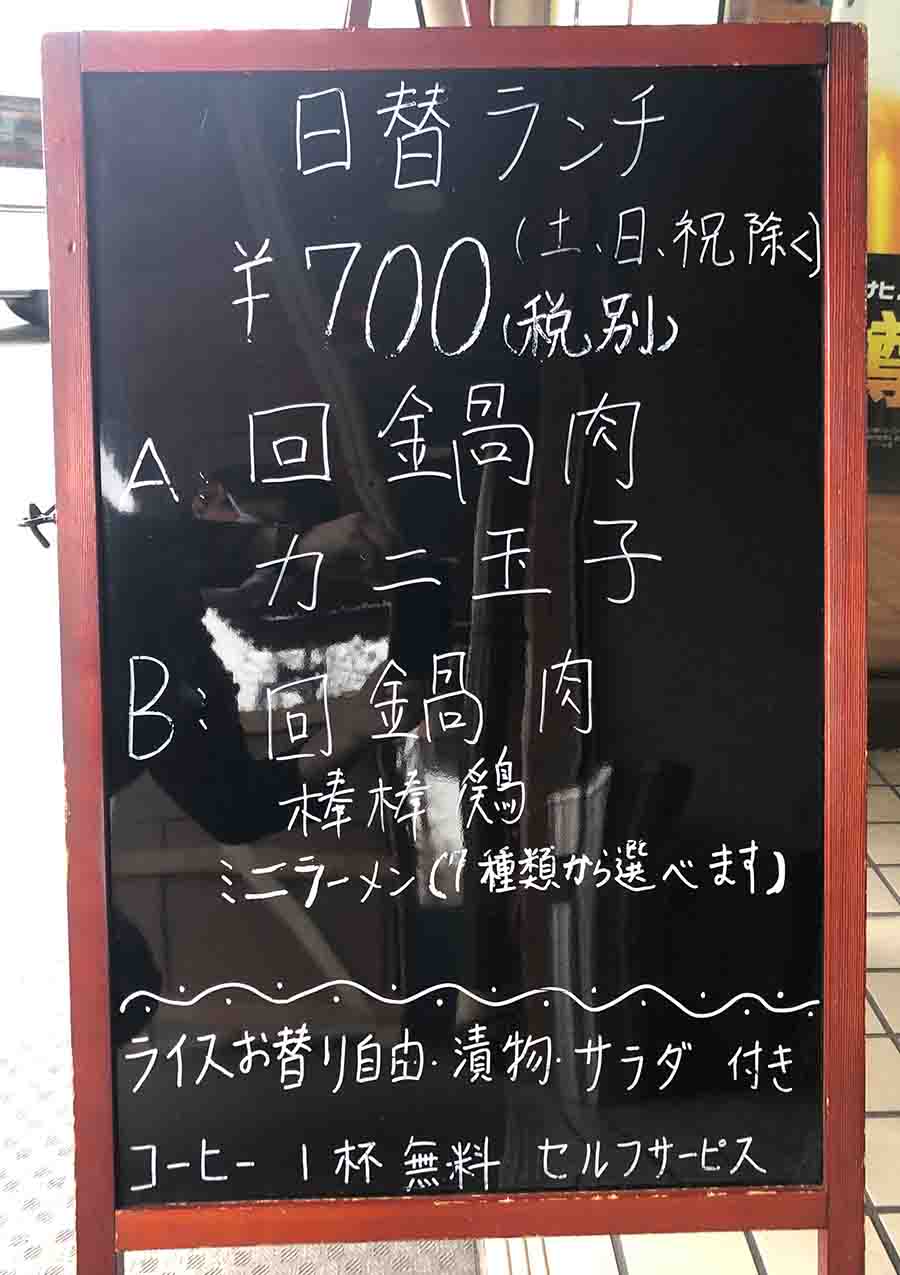 日替ランチ
(土、日、祝除く)
¥700(税別)
A: 回鍋肉
カニ玉子
B: 回鍋肉
棒棒鶏
ミニラーメン(7種類から選べます)
ライスお替り自由・漬物・サラダ 付き
コーヒー 1杯 無料 セルフサービス